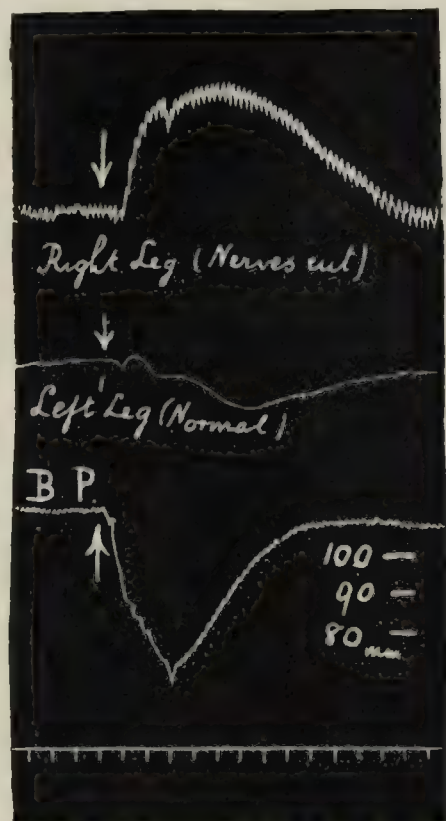 Right Leg (Nerves cut)
Left Leg (Normal)
B P.
100
90
80 mm